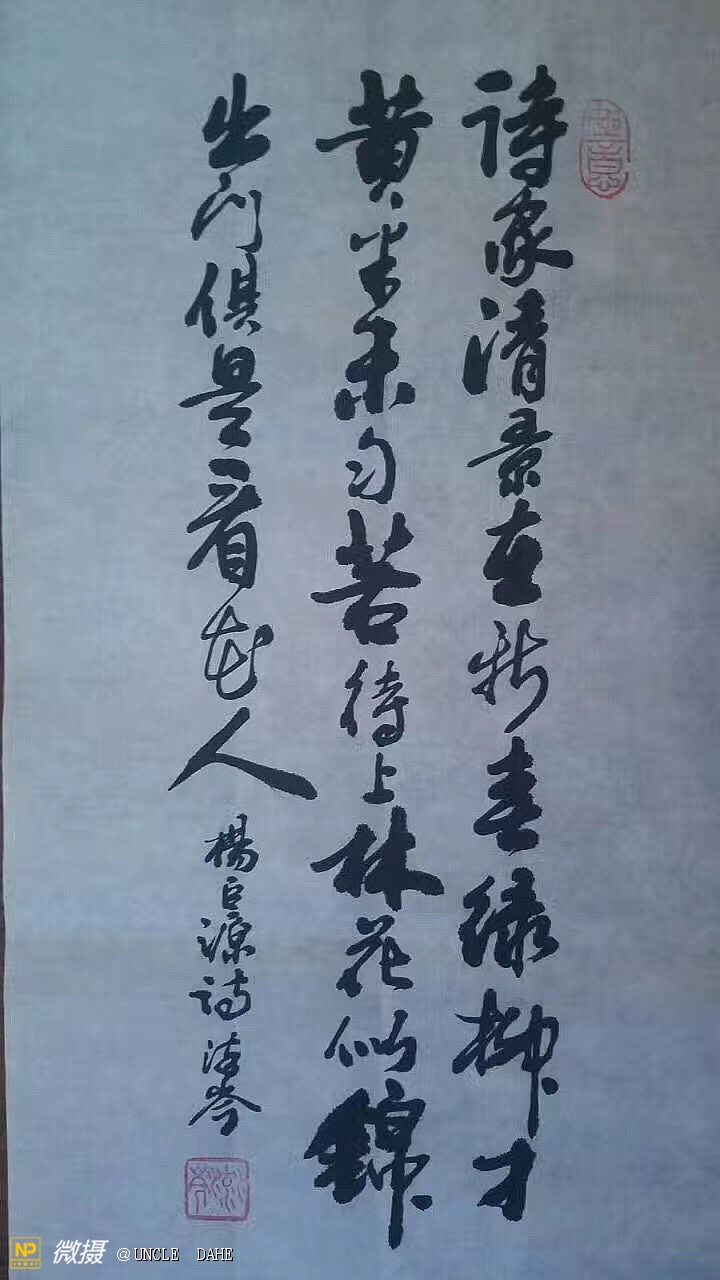 詩家清景在新春緑柳才
黄半未匀若待上林花似錦
出门俱是看花人
楊巨源詩
NP 微摄 @UNCLE DAHE